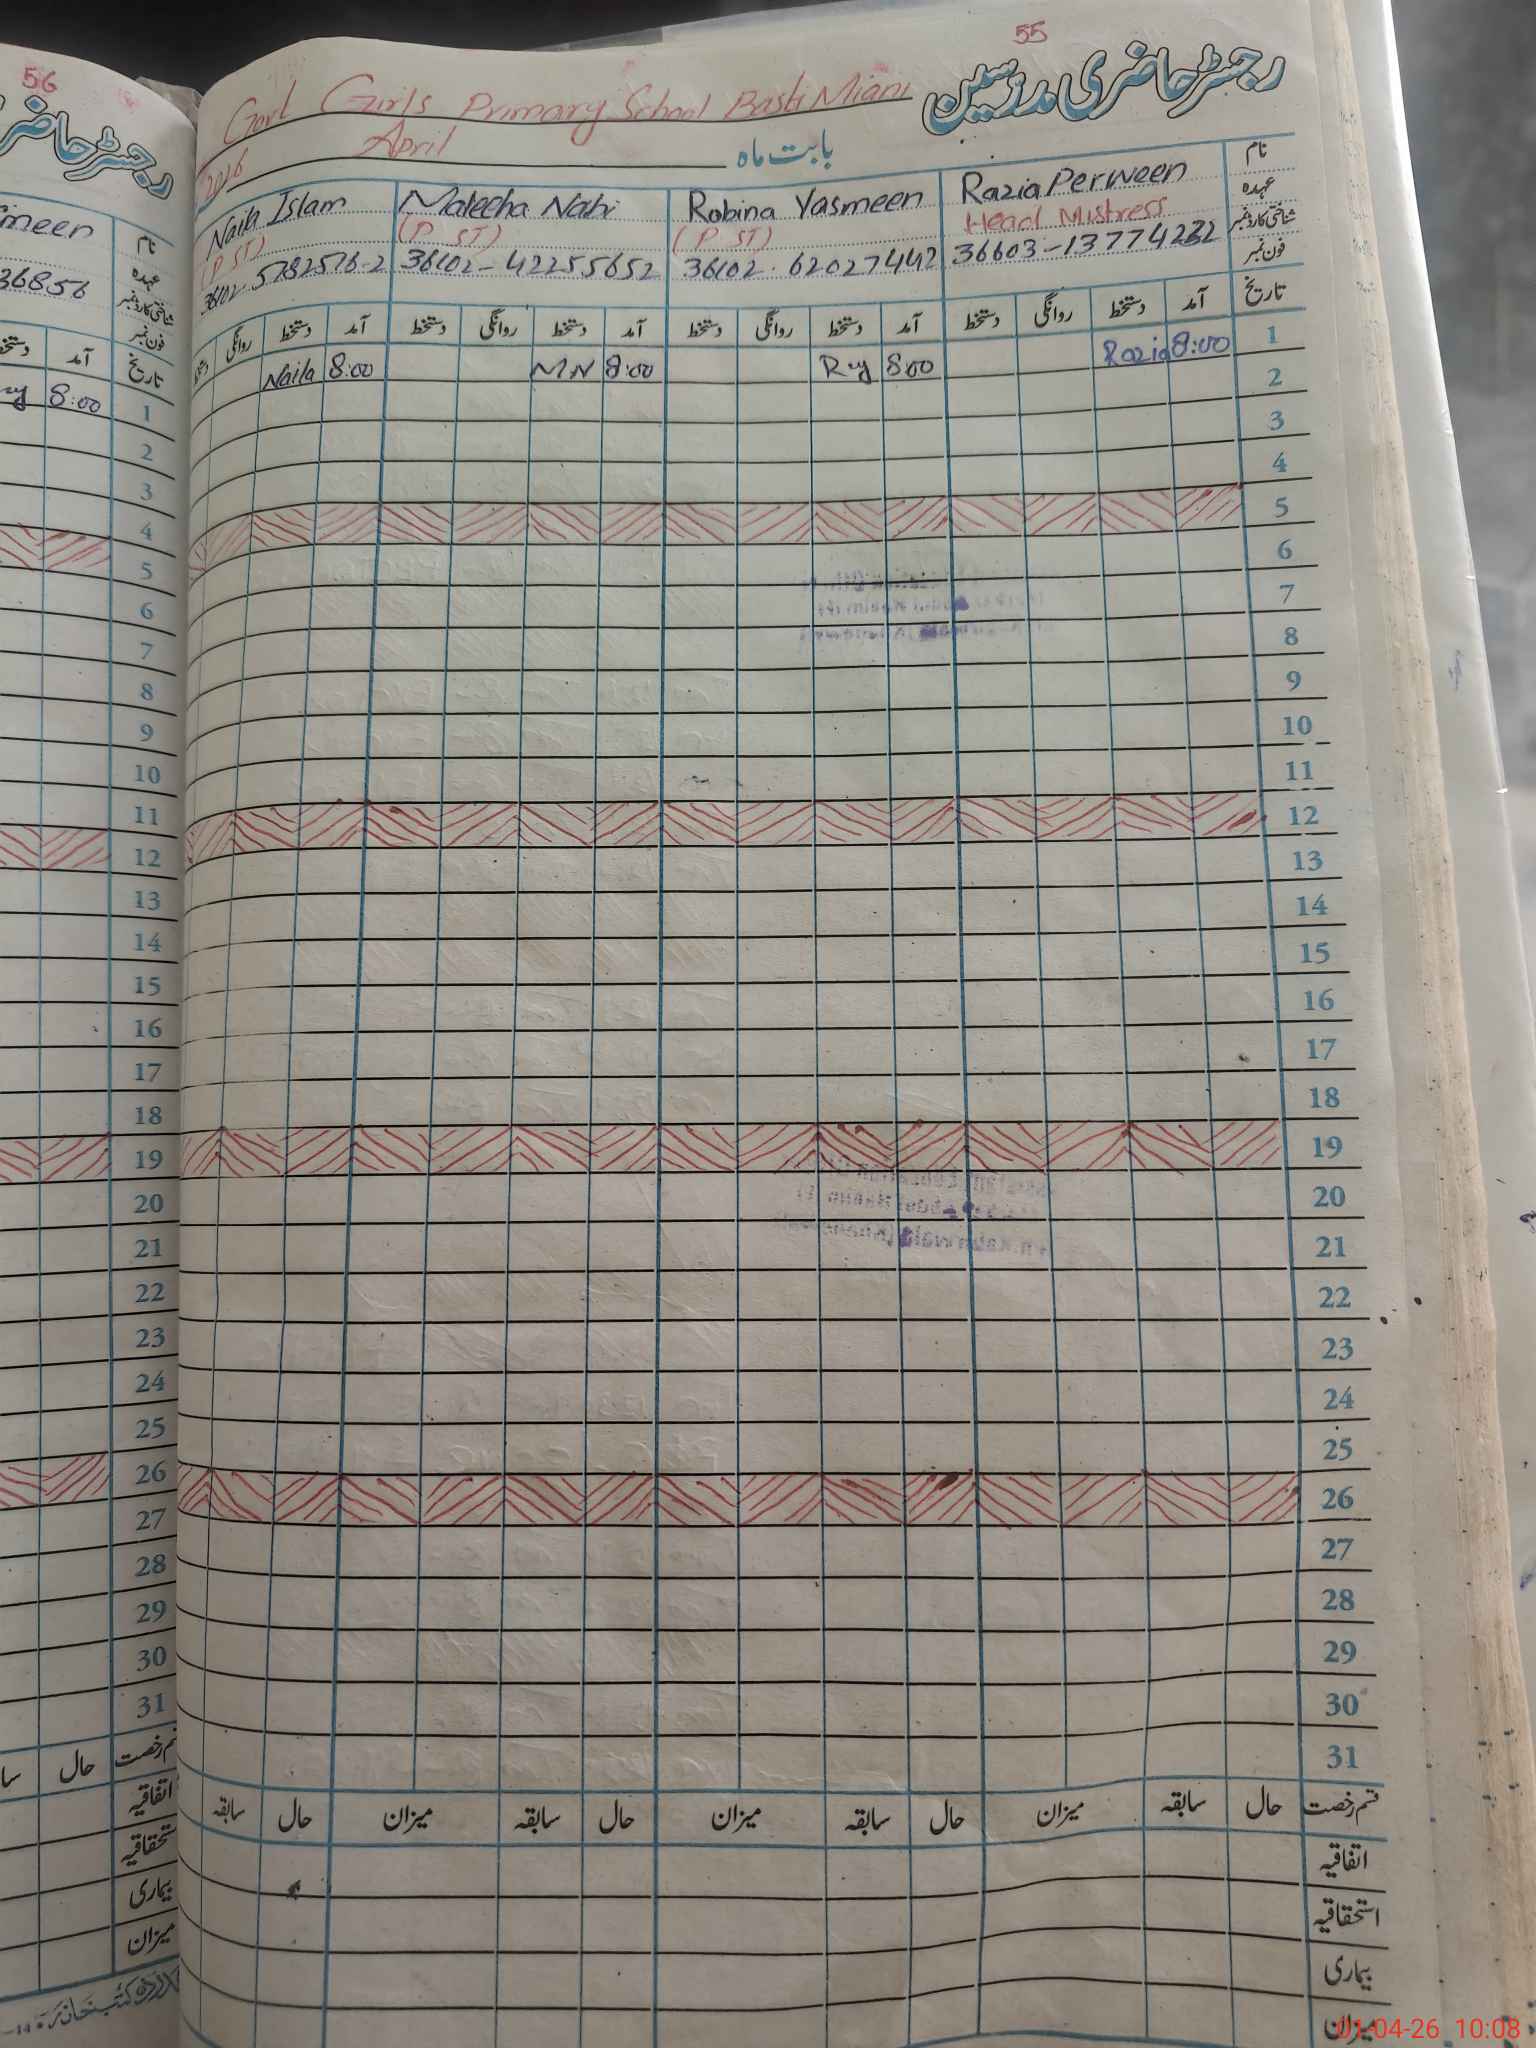 55
رجسٹر حاضری مدرسین
Govt Girls Primary School Basti Miani
بابت ماہ April
2026
نام Razia Perween Robina Yasmeen Maleeha Nabi Naila Islam
عہدہ Head Mistress (P ST) (P ST) (P ST)
شناختی کارڈ نمبر 36603-13774232 36102-62027442 36102-42255652 36102-5782576-2
فون نمبر
تاریخ آمد دستخط روانگی دستخط آمد دستخط روانگی دستخط آمد دستخط روانگی دستخط آمد دستخط روانگی دستخط
1 8:00 Razia 8:00 Ruy 8:00 MN 8:00 Naila
2
3
4
5
6
7
8
9
10
11
12
13
14
15
16
17
18
19
20
21
22
23
24
25
26
27
28
29
30
31
قسم رخصت حال سابقہ میزان حال سابقہ میزان حال سابقہ میزان حال سابقہ
اتفاقیہ
استحقاقیہ
بیماری
میزان
56
رجسٹر حاضر
نام meen
عہدہ
شناختی کارڈ نمبر 36856
فون نمبر
تاریخ آمد
1 8:00
2
3
4
5
6
7
8
9
10
11
12
13
14
15
16
17
18
19
20
21
22
23
24
25
26
27
28
29
30
31
حال
اتفاقیہ
بیماری
میزان
01-04-26 10:08